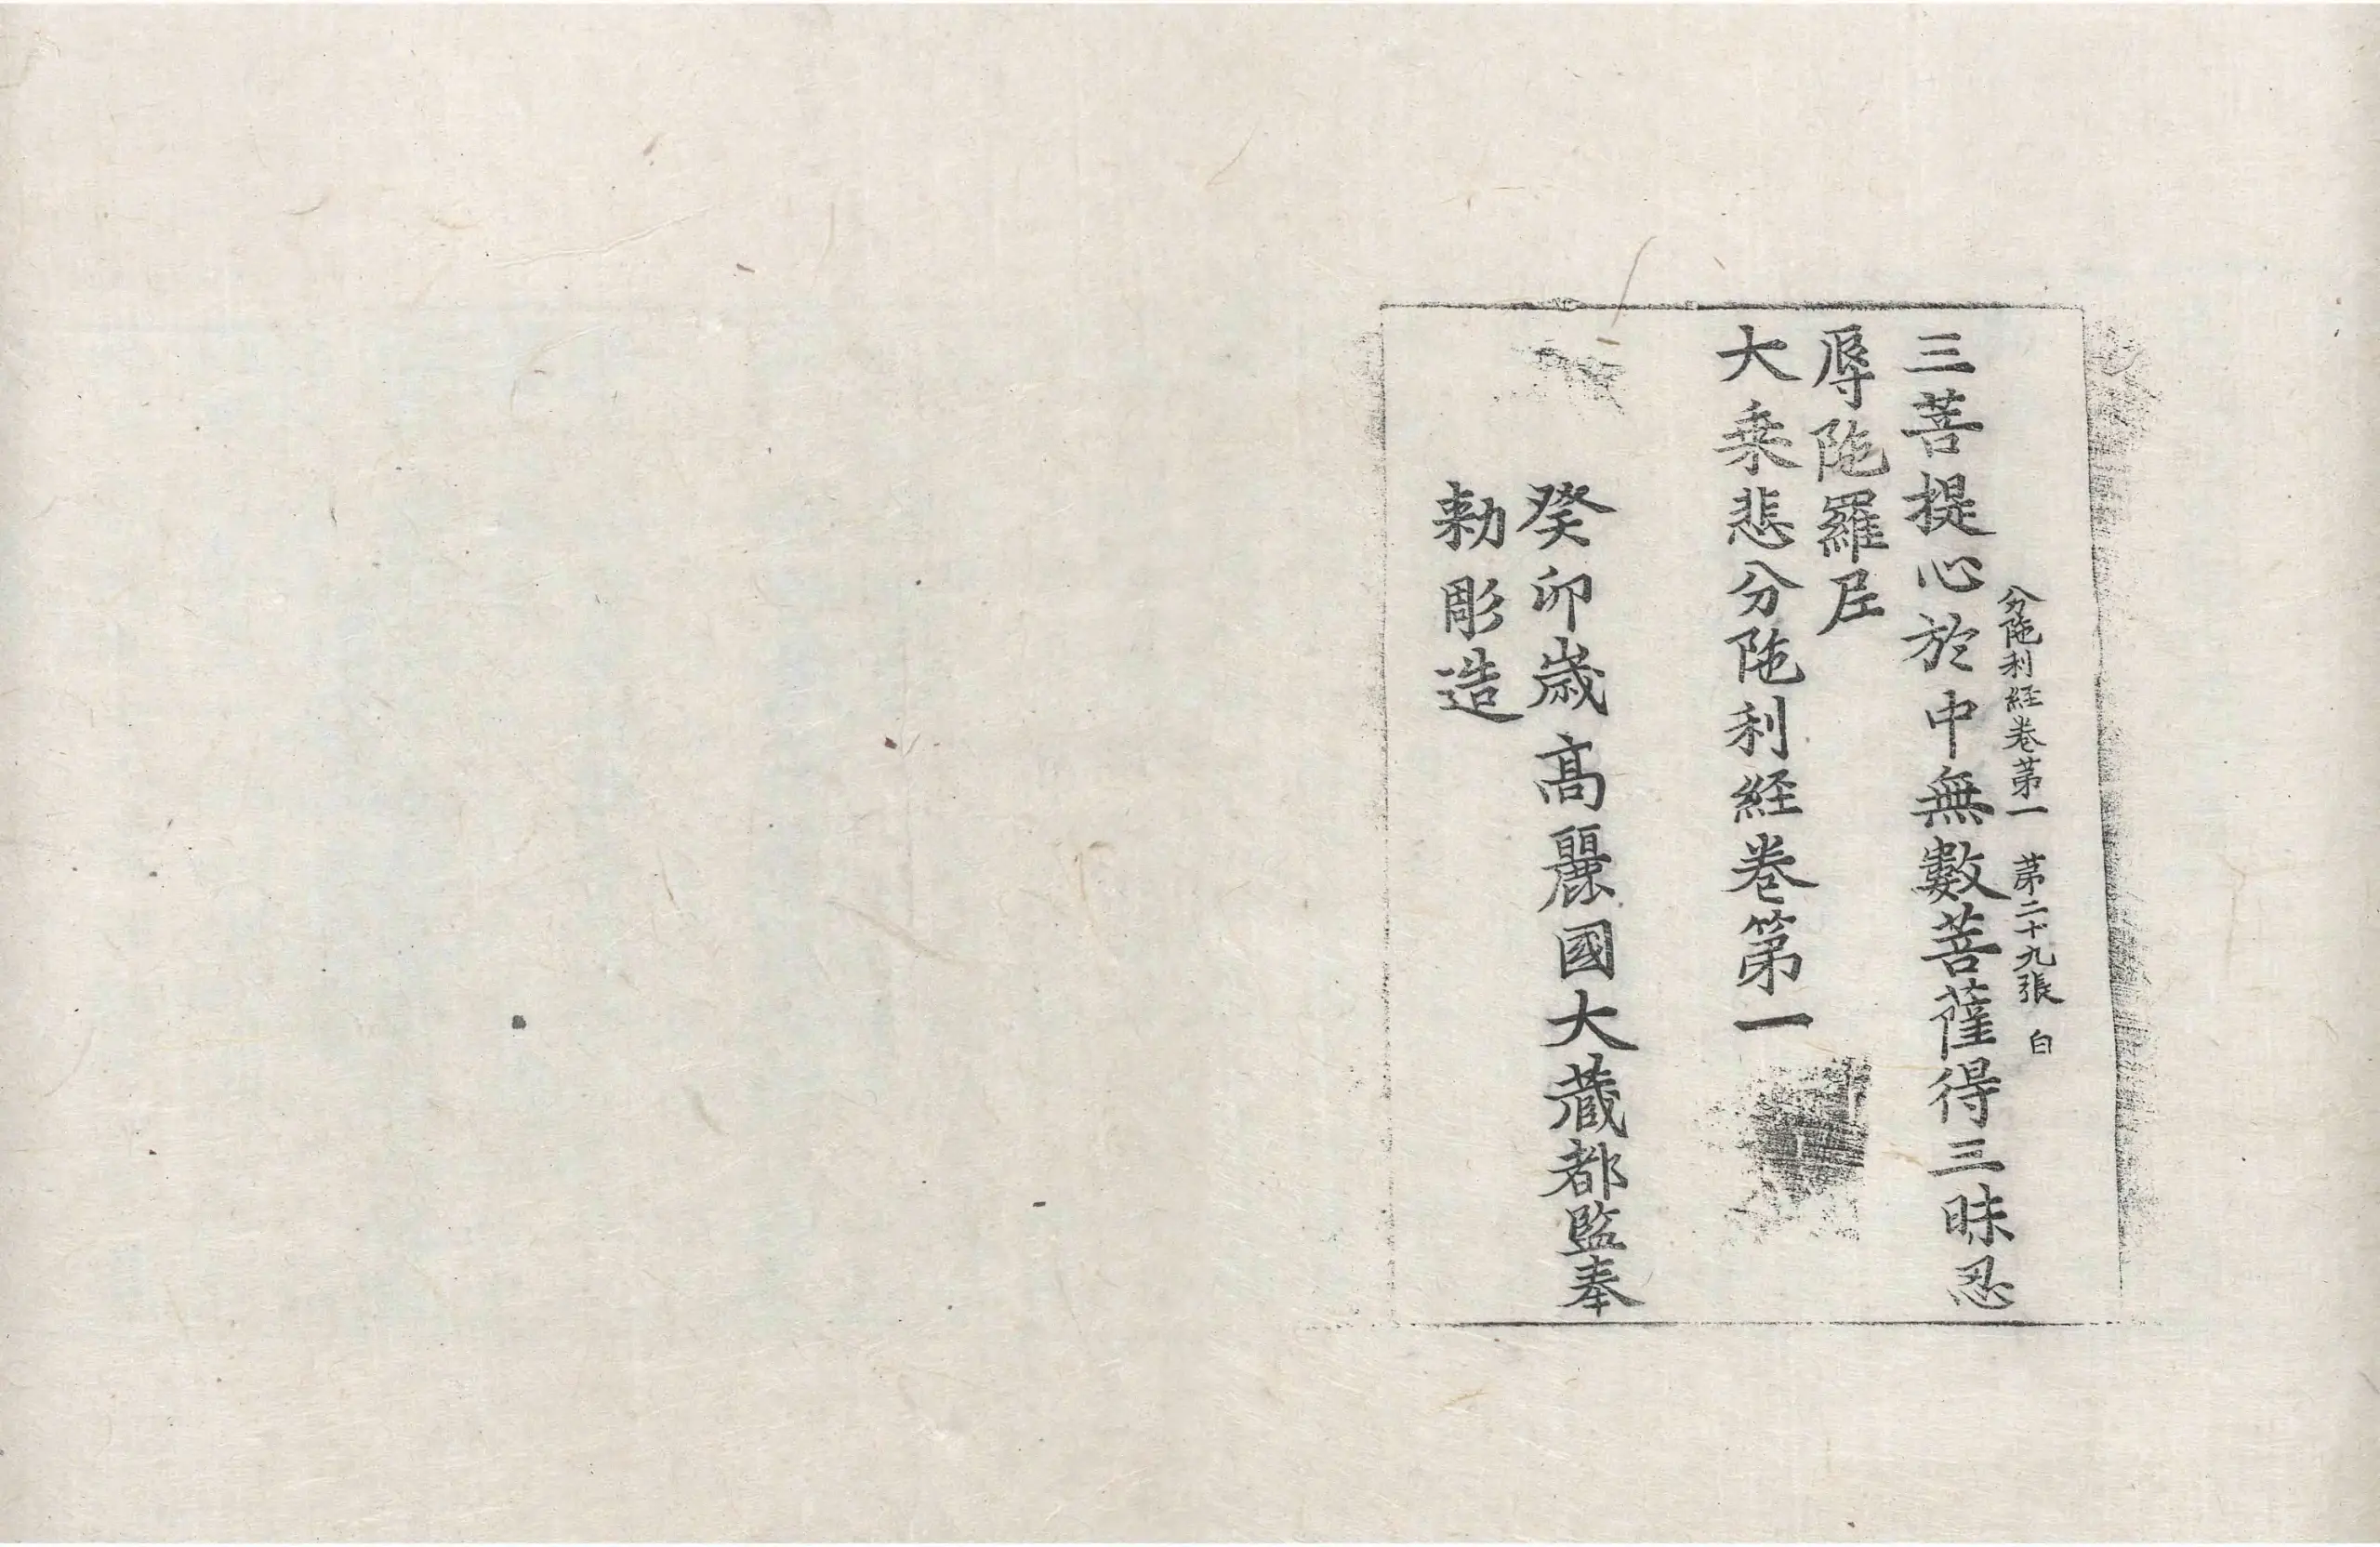 分陁利経卷苐一 苐二十九張 白
三菩提心於中無數菩薩得三昧忍
辱陁羅尼
大乗悲分陁利経卷第一
癸卯歲高麗國大藏都監奉
勑彫造